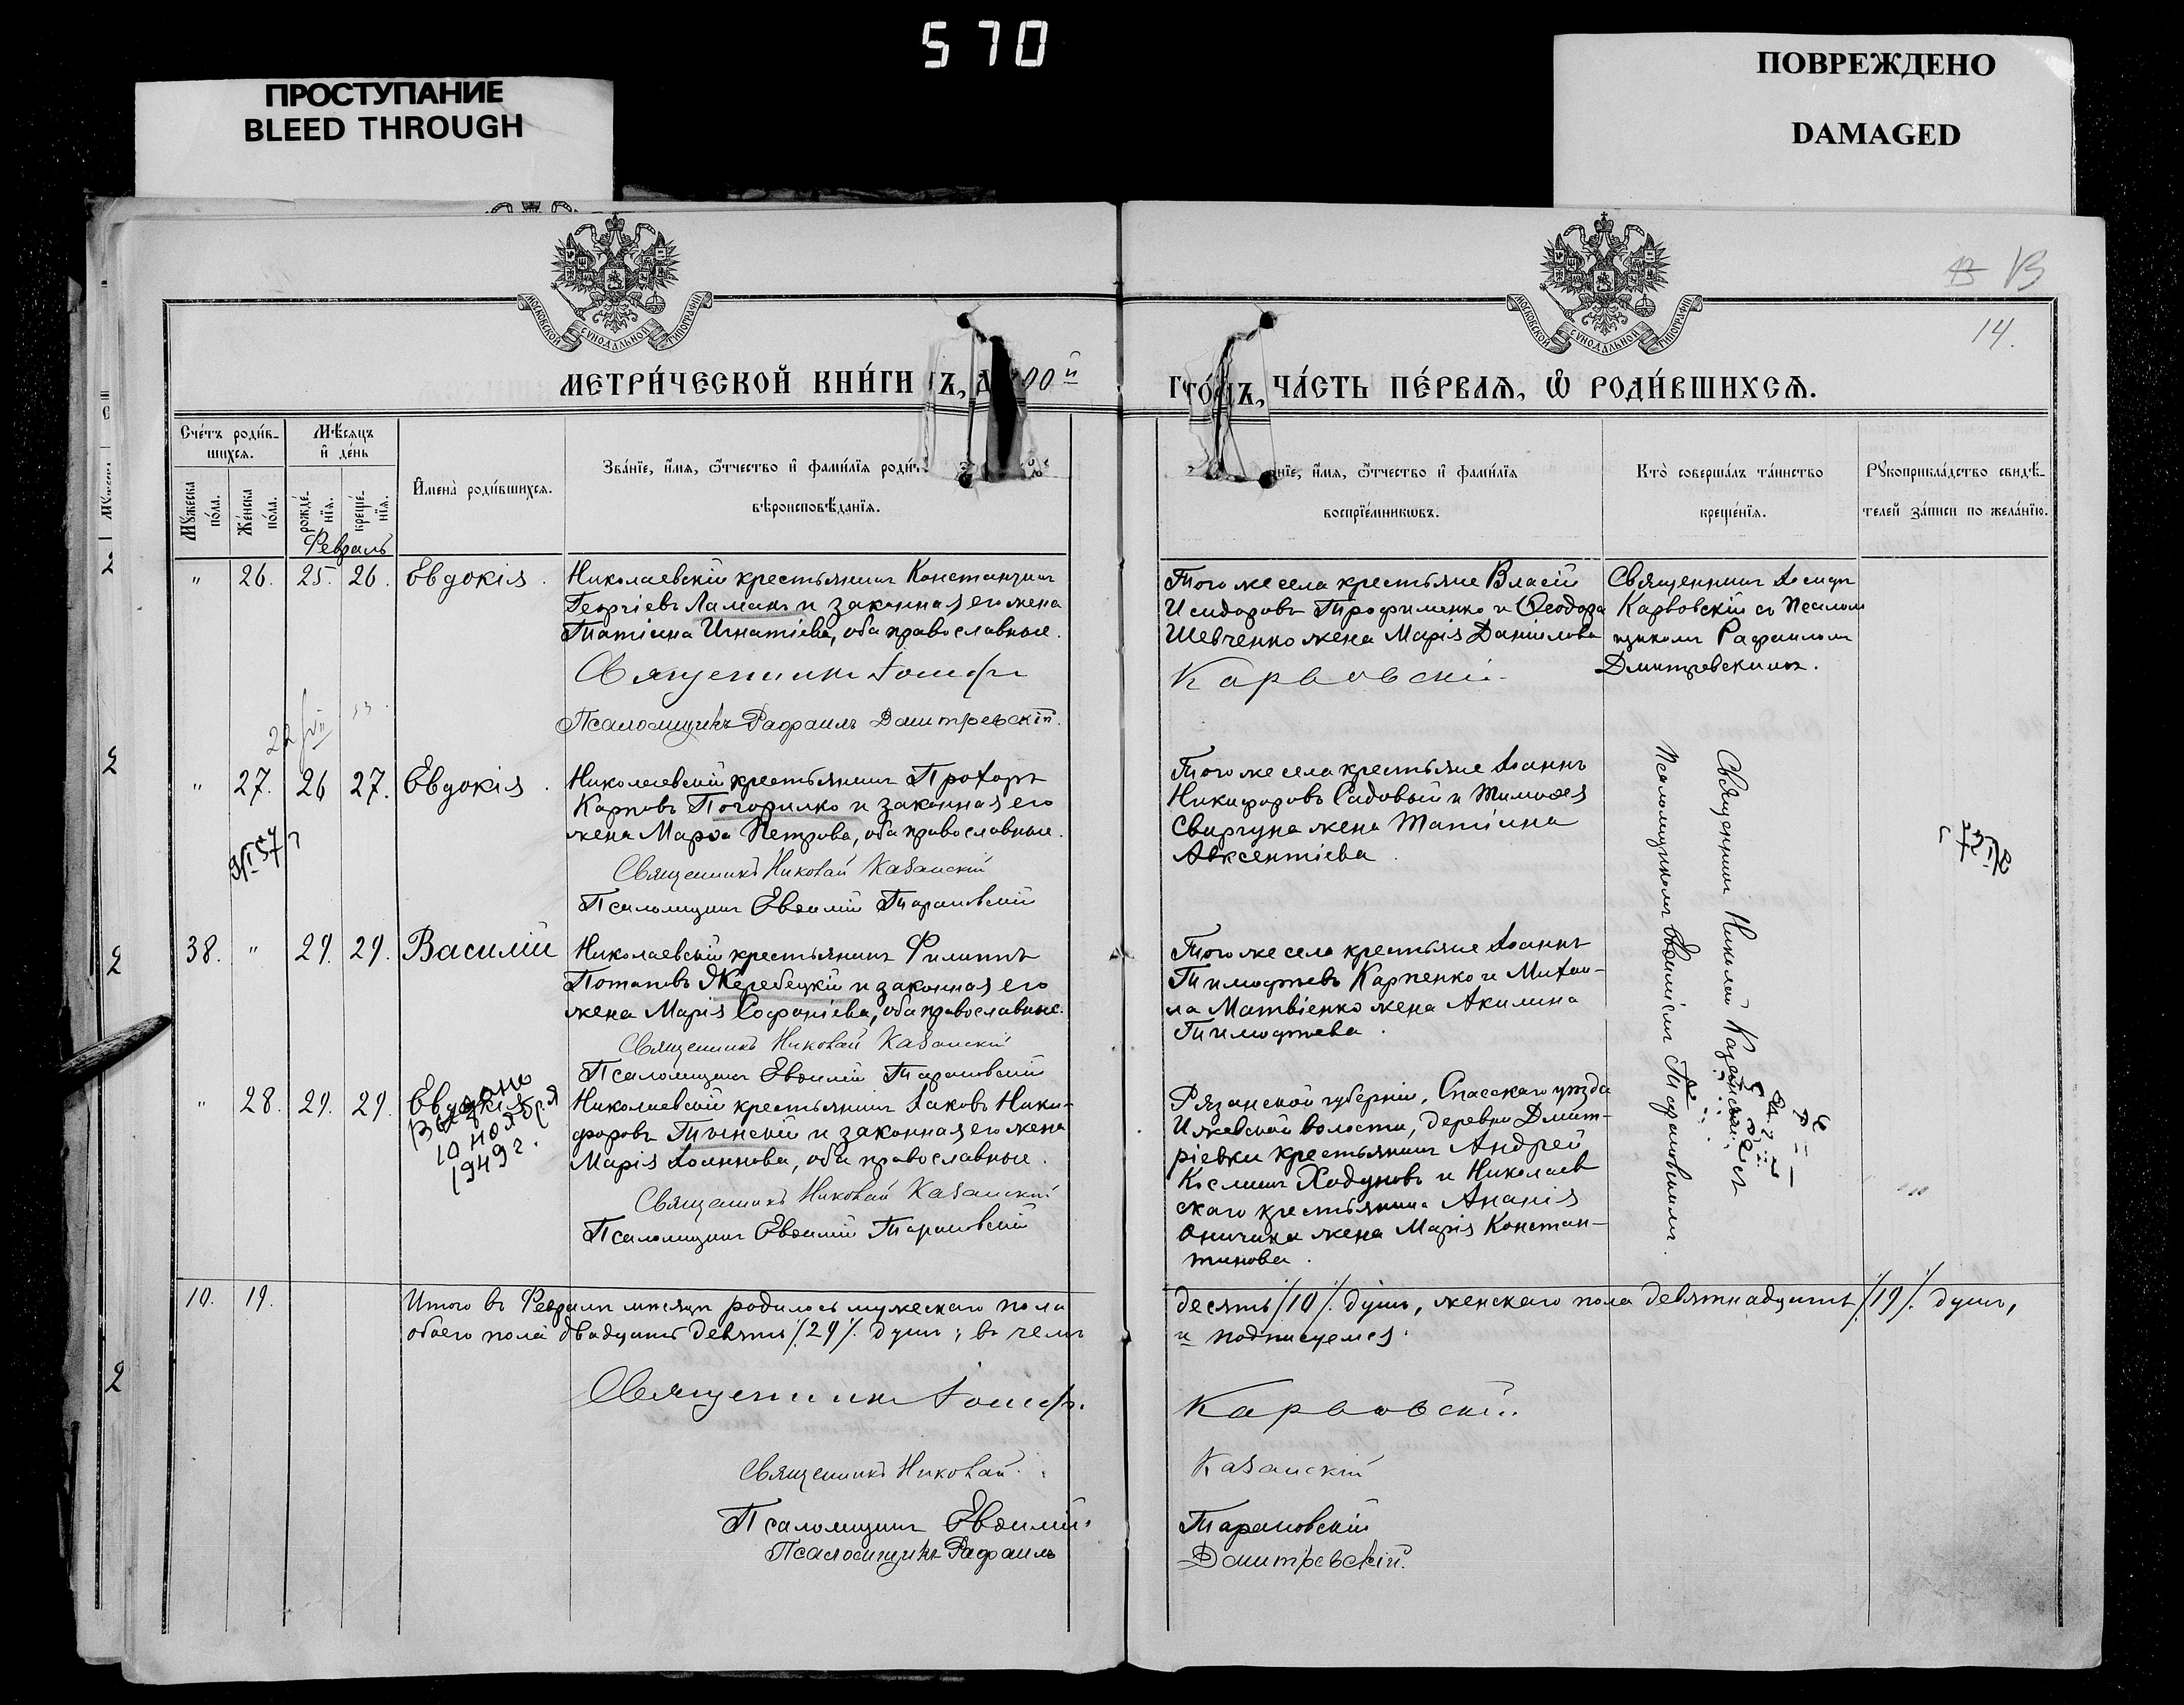 570
ПРОСТУПАНИЕ
BLEED THROUGH
ПОВРЕЖДЕНО
DAMAGED
МОСКОВСКОЙ СѴНОДАЛЬНОЙ ТИПОГРАФІИ
МОСКОВСКОЙ СѴНОДАЛЬНОЙ ТИПОГРАФІИ
13
14.
МЕТРИ́ЧЕСКОЙ КНИ́ГИ
ЧА́СТЬ ПЕ́РВАѦ, Ѡ҆ РОДИ́ВШИХСѦ.
Сче́тъ роди́в-
шихся.
Мѣ́сяцъ
и҆ де́нь
Му́жеска
по́ла.
Же́нска
по́ла.
рожде́-
нїя.
креще́-
нїя.
И҆мена̀ роди́вшихся.
Зва́нїе, и҆́мя, ѻ҆́тчество и҆ фами́лїя
вѣроисповѣ́данїя.
и҆́мя, ѻ҆́тчество и҆ фами́лїя
воспрїе́мникѡвъ.
Кто̀ соверша́лъ та́инство
креще́нїя.
Рукоприкла́дство свидѣ́-
телей за́писи по жела́нїю.
Февраль
" 26. 25. 26. Евдокія.
Николаевскій крестьянинъ Константинъ
Георгіевъ Ламанъ и законная его жена
Татіана Игнатіева, оба православные.
Священникъ Іосифъ
Псаломщикъ Рафаилъ Дмитревскій.
Того же села крестьяне Власій
Исидоровъ Трофименко и Ѳеодора
Шевченко жена Марія Даніилова
Карвовскій
Священникъ Іосифъ
Карвовскій съ Псалом
щикомъ Рафаиломъ
Дмитревскимъ.
" 27. 26 27. Евдокія.
Николаевскій крестьянинъ Прохоръ
Карповъ Погорилко и законная его
жена Марѳа Петрова, оба православные.
Священникъ Николай Казанскій
Псаломщикъ Евѳимій Тарановскій
Того же села крестьяне Іоаннъ
Никифоровъ Садовый и Тимоѳея
Свиргуна жена Татіана
Авксентіева.
Священникъ Николай Казанскій съ
Псаломщикомъ Евѳиміемъ Тарановскимъ.
38. " 29. 29. Василій
Николаевскій крестьянинъ Филиппъ
Потаповъ Жеребецкій и законная его
жена Марія Софоніева, оба православные.
Священникъ Николай Казанскій
Псаломщикъ Евѳимій Тарановскій
Того же села крестьяне Іоаннъ
Тимофѣевъ Карпенко и Михаи-
ла Матвіенко жена Акилина
Тимофѣева.
" 28. 29. 29. Евдокія
Выдано
10 ноября
1949 г.
Николаевскій крестьянинъ Іаковъ Ники-
форовъ Тынскій и законная его жена
Марія Іоаннова, оба православные.
Священникъ Николай Казанскій
Псаломщикъ Евѳимій Тарановскій
Рязанской губерніи, Спасскаго уѣзда
Ижевской волости, деревни Дмит-
ріевки крестьянинъ Андрей
Косминъ Ходуновъ и Николаев
скаго крестьянина Ананія
Оничина жена Марія Констан-
тинова.
10. 19.
Итого въ Февралѣ мѣсяцѣ родилось мужескаго пола
десять /10/. душъ, женскаго пола девятнадцать /19/. душъ,
обоего пола двадцать девять /29/. душъ; въ чемъ
и подписуемся.
Священникъ Іосифъ
Карвовскій.
Священникъ Николай
Казанскій
Псаломщикъ Евѳимій
Тарановскій
Псаломщикъ Рафаилъ
Дмитревскій.